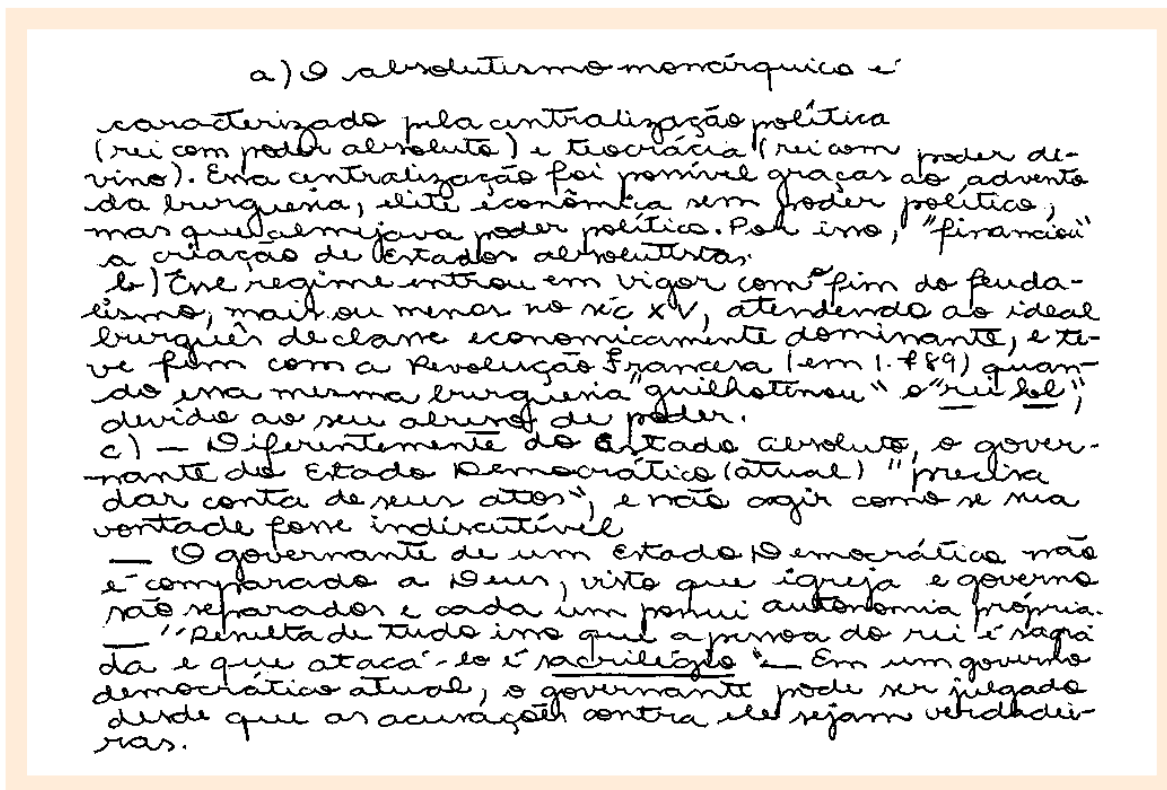 a) O absolutismo monárquico é
caracterizado pela centralização política
(rei com poder absoluto) e teocrácia (rei com poder di-
vino). Essa centralização foi possível graças ao advento
da burguesia, elite econômica sem poder político,
mas que almejava poder político. Por isso, "financiou"
a criação de Estados absolutistas.
b) Esse regime entrou em vigor com o fim do feuda-
lismo, mais ou menos no séc XV, atendendo ao ideal
burguês de classe economicamente dominante, e te-
ve fim com a Revolução Francesa (em 1.789) quan-
do essa mesma burguesia "guilhotinou" o "rei sol",
devido ao seu abuso de poder.
c) – Diferentemente do Estado absoluto, o gover-
nante do Estado Democrático (atual) "precisa
dar conta de seus atos", e não agir como se sua
vontade fosse indiscutível
– O governante de um Estado Democrático não
é comparado a Deus, visto que igreja e governo
são separados e cada um possui autonomia própria.
– "Resulta de tudo isso que a pessoa do rei é sagra
da e que atacá-lo é sacrilégio" – Em um governo
democrático atual, o governante pode ser julgado
desde que as acusações contra ele sejam verdadei-
ras.